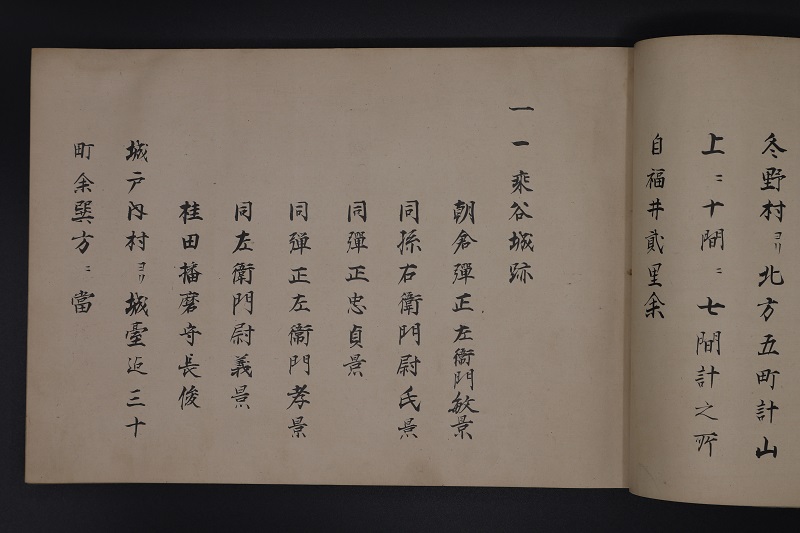 冬野村ヨリ北方五町計山
上ニ十間ニ七間計之所
自福井貳里余
一一乗谷城跡
朝倉彈正左衛門敏景
同孫右衛門尉氏景
同彈正忠貞景
同彈正左衛門孝景
同左衛門尉義景
桂田播磨守長俊
城戸内村ヨリ城臺迄三十
町余巽方ニ當